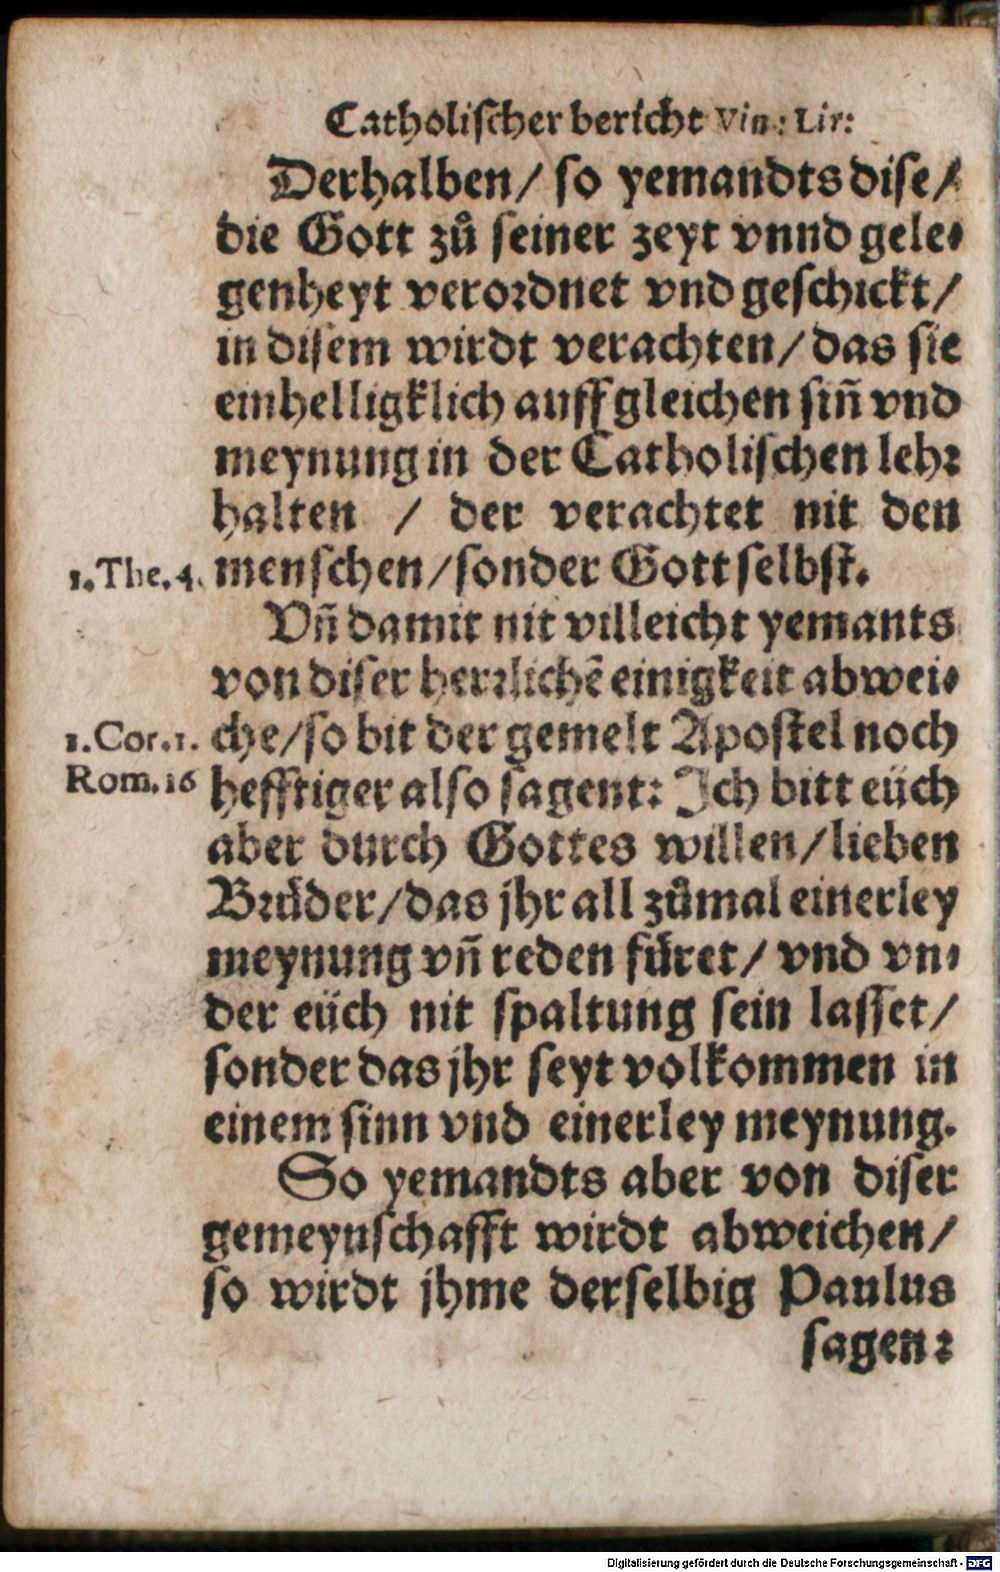 Catholischer bericht Vin: Lir:
Derhalben/ so yemandts dise/
die Gott zů seiner zeyt vnnd gele-
genheyt verordnet vnd geschickt/
in disem wirdt verachten/das sie
einhelligklich auff gleichen siñ vnd
meynung in der Catholischen lehr
halten / der verachtet nit den
1.The.4. menschen/sonder Gott selbst.
Vñ damit nit villeicht yemants
von diser herrlichẽ einigkeit abwei-
1.Cor.1. che/so bit der gemelt Apostel noch
Rom.16 hefftiger also sagent: Ich bitt eüch
aber durch Gottes willen/lieben
Brůder/das jhr all zůmal einerley
meynung vñ reden füret/ vnd vn-
der eüch nit spaltung sein lasset/
sonder das jhr seyt volkommen in
einem sinn vnd einerley meynung.
So yemandts aber von diser
gemeynschafft wirdt abweichen/
so wirdt jhme derselbig Paulus
sagen:
Digitalisierung gefördert durch die Deutsche Forschungsgemeinschaft - DFG